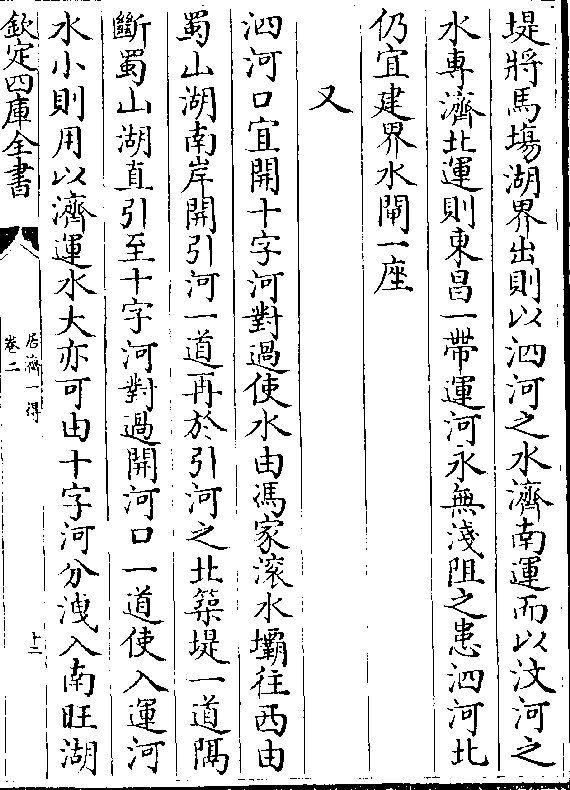 堤將馬塲湖界出則以泗河之水濟南運而以汶河之
水專濟北運則東昌一帶運河永無淺阻之患泗河北
仍宜建界水閘一座
又
泗河口宜開十字河對過使水由馮家滚水壩往西由
蜀山湖南岸開引河一道再於引河之北築堤一道隔
斷蜀山湖直引至十字河對過開河口一道使入運河
水小則用以濟運水大亦可由十字河分洩入南旺湖
欽定四庫全書
居濟一得
卷二
十二